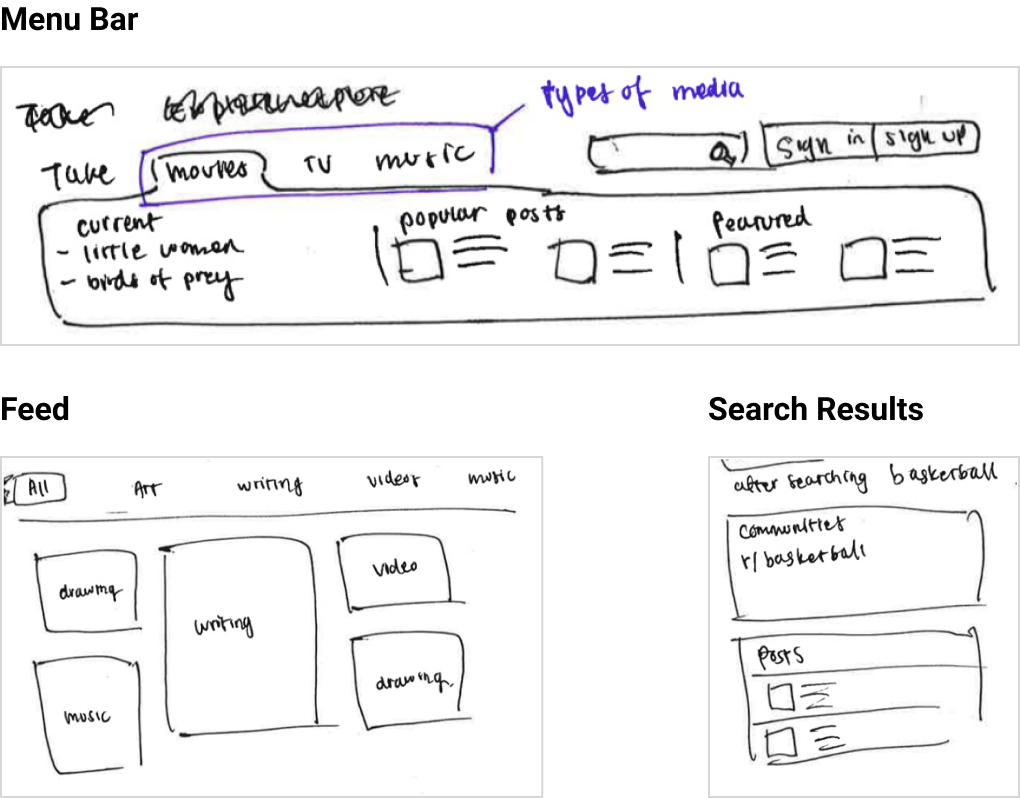 Menu Bar
types of media
Take movies TV music Sign in sign up
current popular posts Featured
- little women
- birds of prey
Feed
All Art writing videos music
drawing writing video
music drawing
Search Results
after searching basketball
communities
r/basketball
Posts